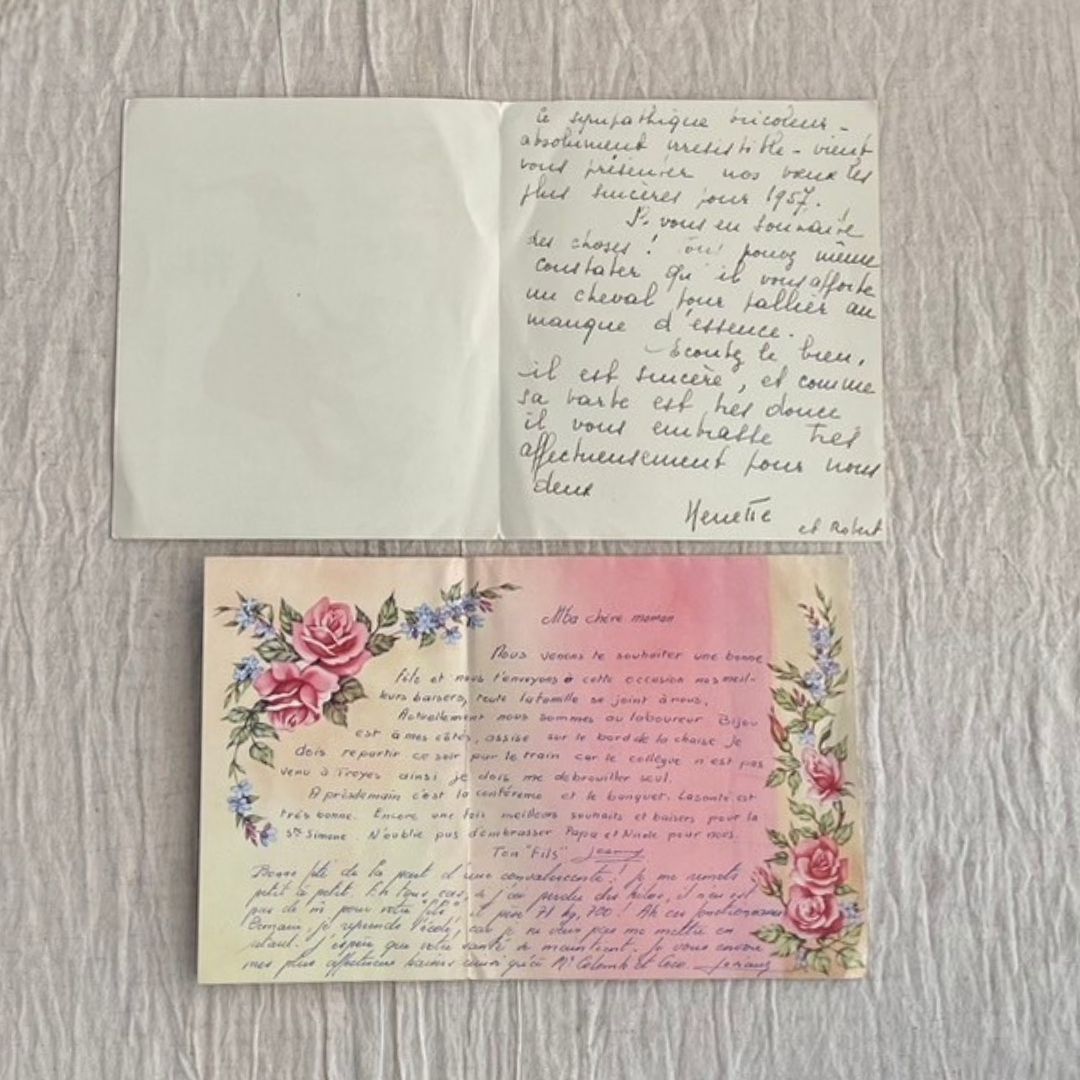 Ce sympathique bricoleur -
absolument irresistible - vient
vous présenter nos vœux les
plus sincères pour 1957.
vous en souhaite
des choses ! pouvez même
constater qu'il vous apporte
un cheval pour pallier au
manque d'essence.
- Ecoutez le bien,
il est sincère, et comme
sa barbe est très douce
il vous embrasse très
affectueusement pour nous
deux
et Robert
Ma chère maman
Nous venons te souhaiter une bonne
fête et nous t'envoyons à cette occasion nos meil-
leurs baisers, toute la famille se joint à nous.
Actuellement nous sommes au laboureur Bijou
est à mes côtés, assise sur le bord de la chaise je
dois repartir ce soir par le train car le collègue n'est pas
venu à Troyes ainsi je dois me debrouiller seul.
Après demain c'est la conférence et le banquet. La santé est
très bonne. Encore une fois meilleurs souhaits et baisers pour la
Ste Simone. N'oublie pas d'embrasser Papa et pour nous.
Ton "Fils"
Bonne fête de la part d'une convalescente ! Je me remets
petit à petit. En tous cas, si j'ai perdu des kilos, il n'en est
pas de m pour votre "fils", il pèse 71 kg,700 ! Ah ces fonctionnaires
Demain, je reprends l'école, car je ne veux pas me mettre en
retard. J'espère que votre santé se maintient. Je vous envoie
mes plus affectueux baisers ainsi qu'à Mr et Coco.